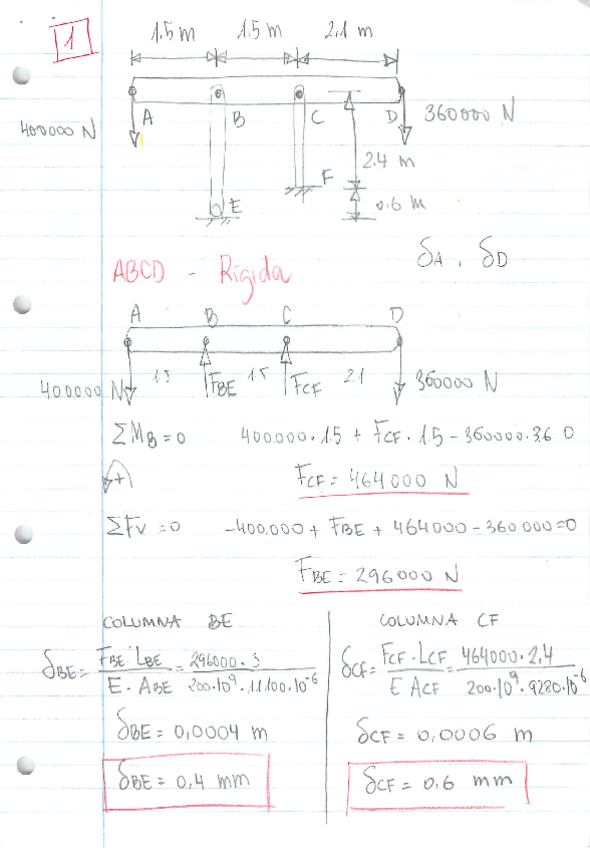 1
1.5 m 1.5 m 2.1 m
A B C D
400000 N 360000 N
2.4 m
F
0.6 m
E
δA , δD
ABCD - Rígida
A B C D
400000 N 1.5 FBE 1.5 FCF 2.1 360000 N
ΣMB = 0 400.000 · 1.5 + FCF · 1.5 - 360000 · 3.6 0
+
FCF = 464000 N
ΣFV = 0 -400.000 + FBE + 464000 - 360.000 = 0
FBE = 296000 N
COLUMNA BE
δBE = FBE · LBE / E · ABE = 296000 · 3 / 200·10^9 · 11100·10^-6
δBE = 0,0004 m
δBE = 0,4 mm
COLUMNA CF
δCF = FCF · LCF / E ACF = 464000 · 2,4 / 200·10^9 · 9280·10^-6
δCF = 0,0006 m
δCF = 0.6 mm